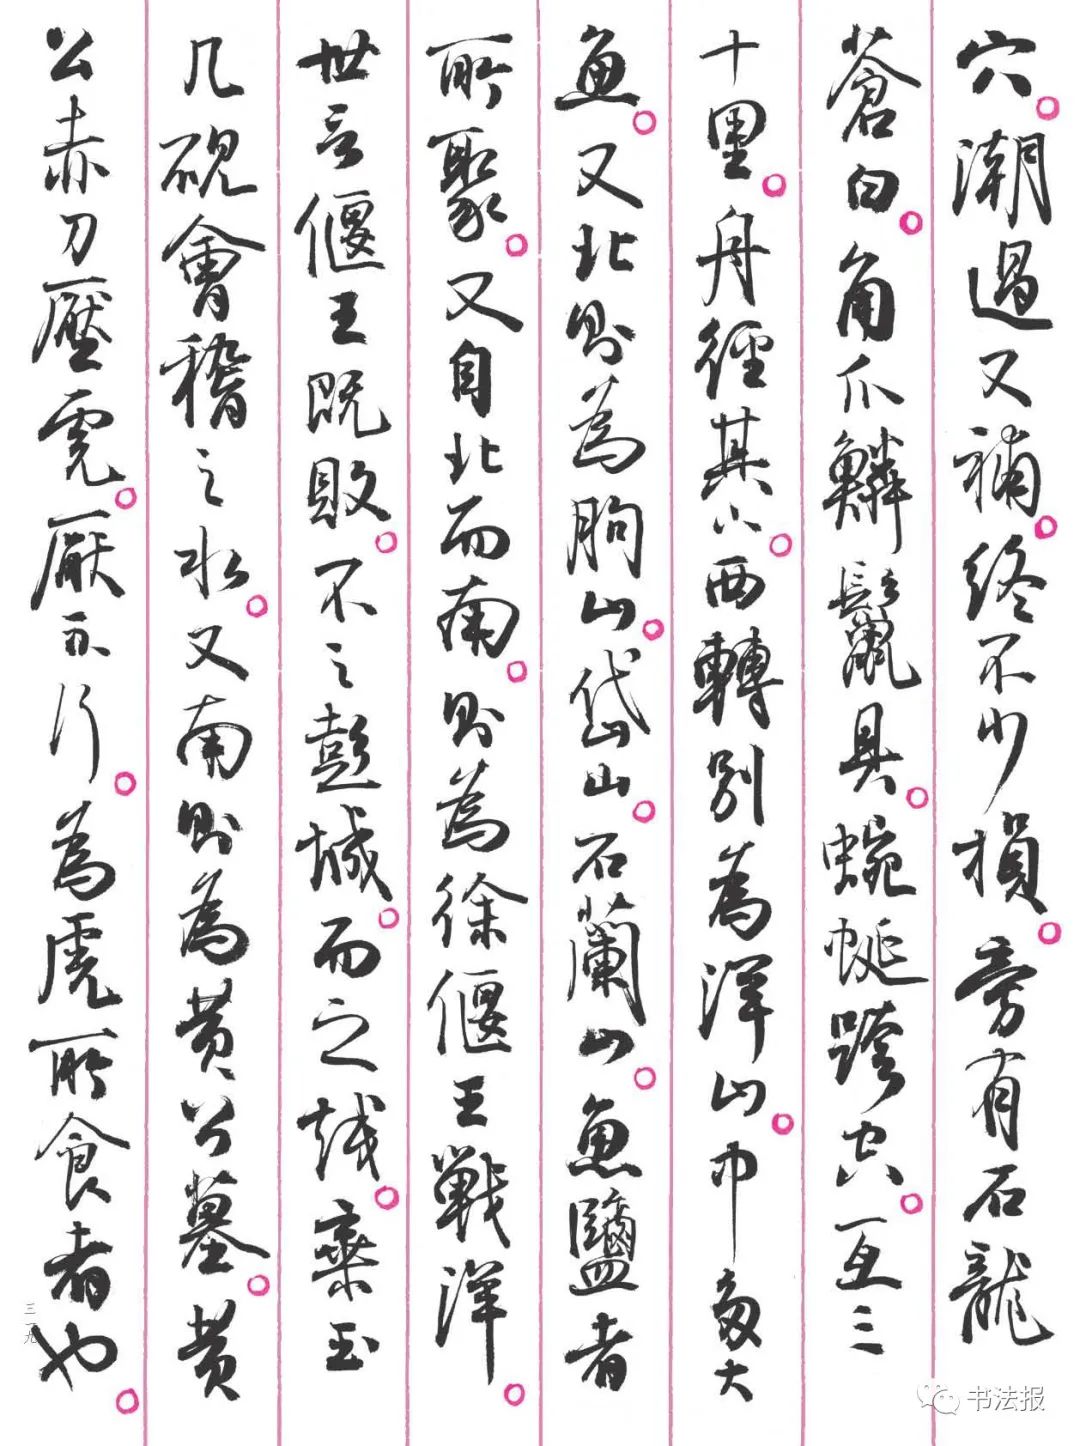 穴。潮過又補。終不少損。旁有石龍
蒼白。角爪鱗鬣具。蜿蜒跨空。亙三
十里。舟徑其下。西轉別為洋山。中多大
魚。又北則為朐山。岱山。石蘭山。魚鹽者
所聚。又自北而南。則為徐偃王戰洋。
世言偃王既敗。不之彭城。而之越。棄玉
几硯會稽之水。又南則為黃公墓。黃
公赤刀壓虎。厭不行。為虎所食者也。
三一九
书法报